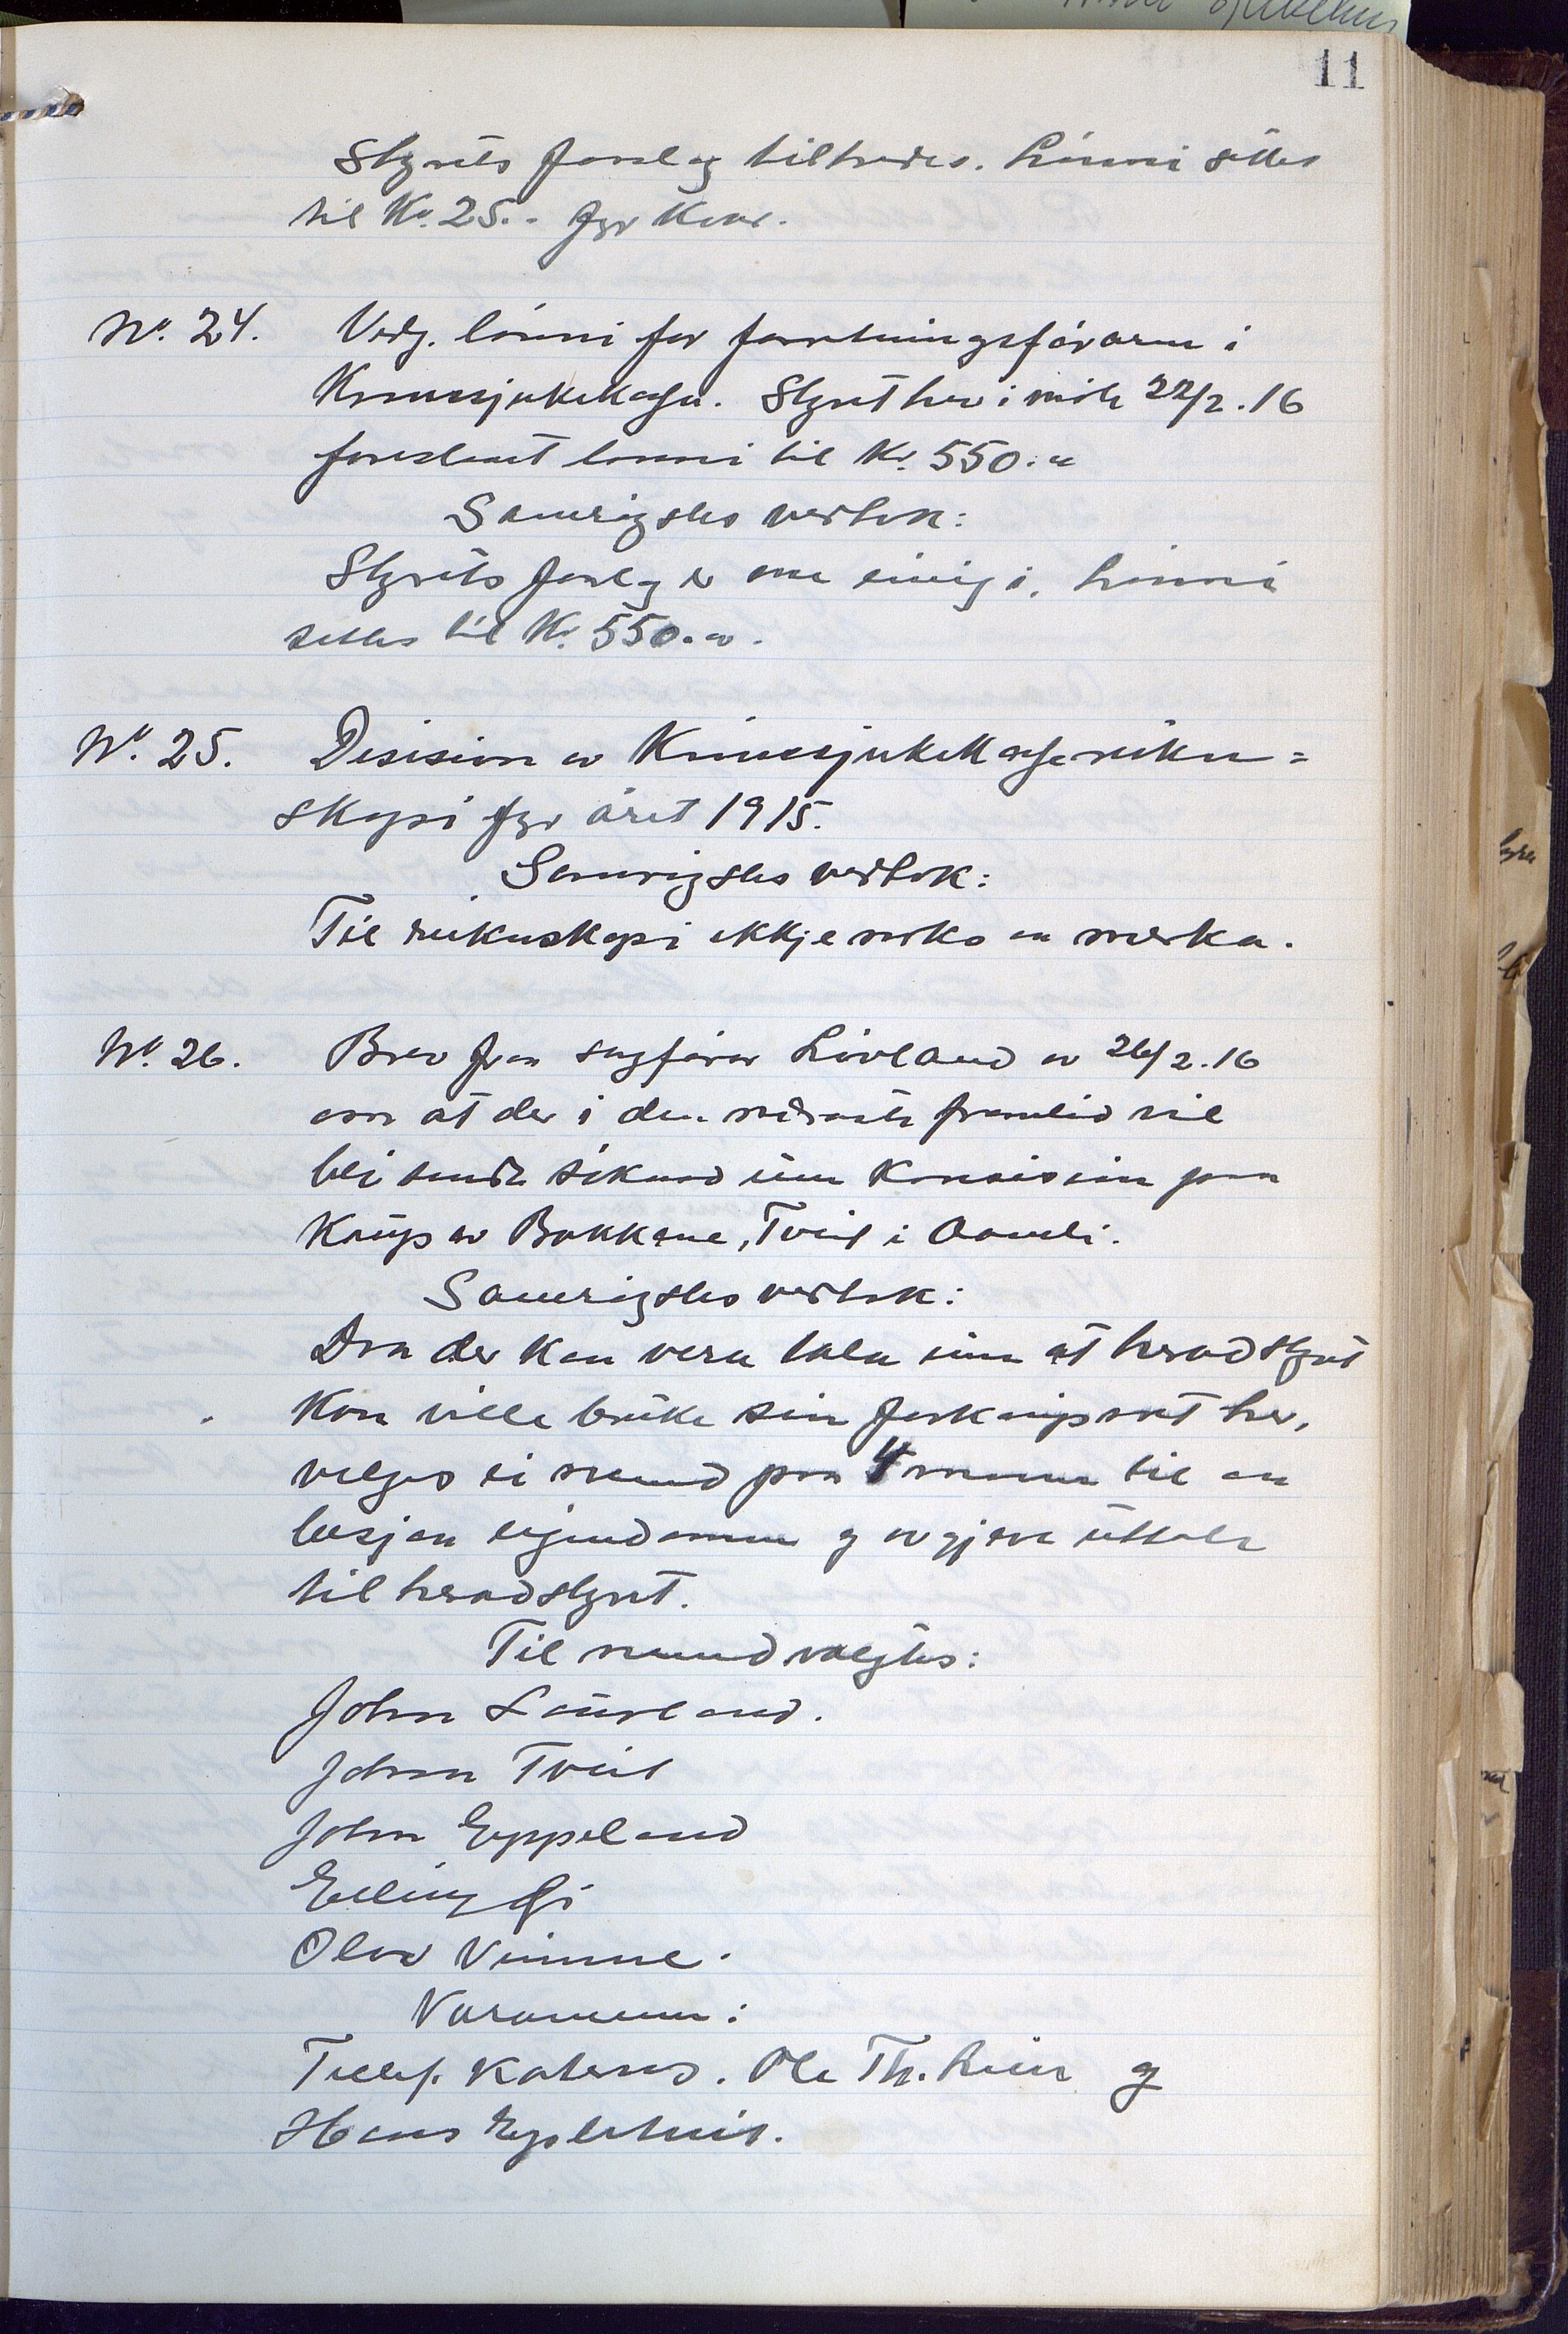 11
Styrets forslag tiltredes. Lönni settes
til Kr. 25.- fyr kvar.
No. 24. Vedg. lönni for forretningsföraren i
Krinssjukekassa. Styret hev i möte 22/2. 16
foreslaat lönni til Kr. 550.00
Samrøystes vedtok:
Styrets forslag er ein einig i. Lönni
settes til Kr. 550.00.
No. 25. Desision av Krinssjukekasserekne=
skapi fyr året 1915.
Samrøystes vedtok:
Til rekneskapi ikkje noko aa merka.
No. 26. Brev fraa sagförar Lövland av 26/2. 16
om at der i den nærmaste framtid vil
bli sendt söknad um Konsesion paa
Kaup av Bakkane, Tveit i Aamli.
Samrøystes vedtok:
Daa der kan vera tala um at heradstyret
Kan ville bruke sin forkaupsret her,
velges ei nemnd paa 4 menn til aa
besjaa eigendomen og avgjeva uttale
til heradstyret.
Til nemnd valgtes:
John Lauvland.
Johan Tveit
John Eppeland
Elling
Olav Vimme.
Varamenn:
Tellef. Kateraas. Ole Th. Lien og
Hans Eppletveit.